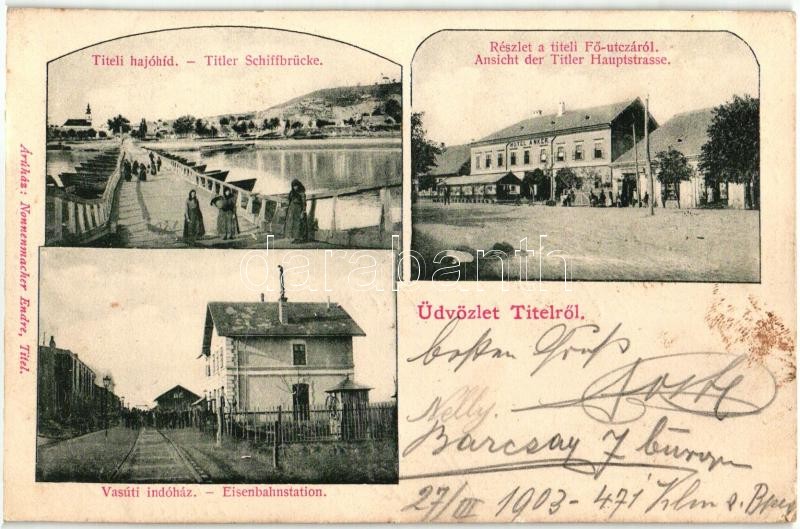 Titeli hajóhíd. – Titler Schiffbrücke.
Részlet a titeli Fő-utczáról.
Ansicht der Titler Hauptstrasse.
HOTEL ANKER
Árúház: Nonnenmacher Endre, Titel.
darabanth
Üdvözlet Titelről.
besten Gruß
Nelly.
Barcsay 7
27/III 1903 - 471 Klm
Vasúti indóház. – Eisenbahnstation.